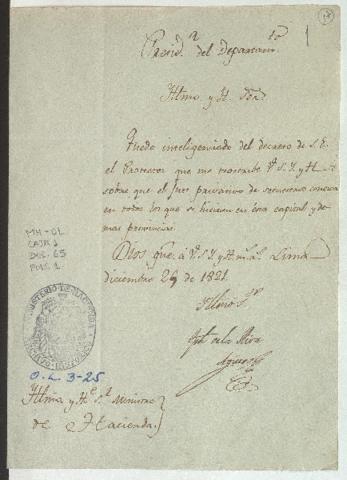 1
Presid.ª del Departam.to
Yltmo y H. Sor.
Quedo inteligenciado del decreto de S. E.
el Protector que me trascribe V. S. Y. y H.
sobre que el Juez privativo de secuestros conosca
en todos los que se hicieren en esta capital y de-
mas provincias.
Dios gue. á V. S. Y. y H. m.s a.s Lima
diciembre 26 de 1821.
Yltmo S.or
José de la Riva
Aguero
MH-OL
CAJA 1
DOC. 65
FOLS. 1
MINISTERIO DE HACIENDA
O.L. 3-25
Yltmo y H.e S.r Ministro
de Hacienda.